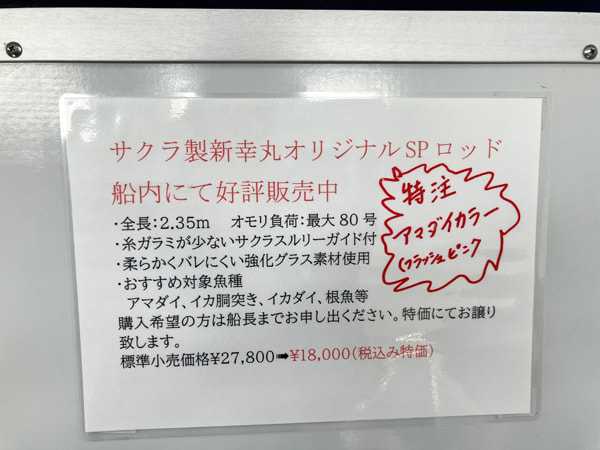 サクラ製新幸丸オリジナルSPロッド
船内にて好評販売中
・全長:2.35m　オモリ負荷:最大80号
・糸ガラミが少ないサクラスルリーガイド付
・柔らかくバレにくい強化グラス素材使用
・おすすめ対象魚種
アマダイ、イカ胴突き、イカダイ、根魚等
購入希望の方は船長までお申し出ください。特価にてお譲り
致します。
標準小売価格¥27,800➡¥18,000(税込み特価)
特注
アマダイカラー
(フラッシュピンク